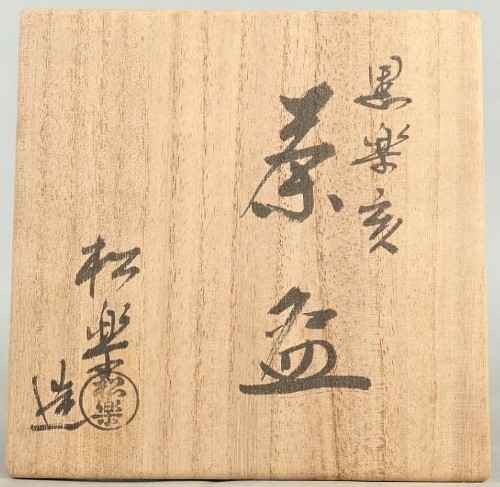 黒楽亥
茶盌
松楽造
松楽